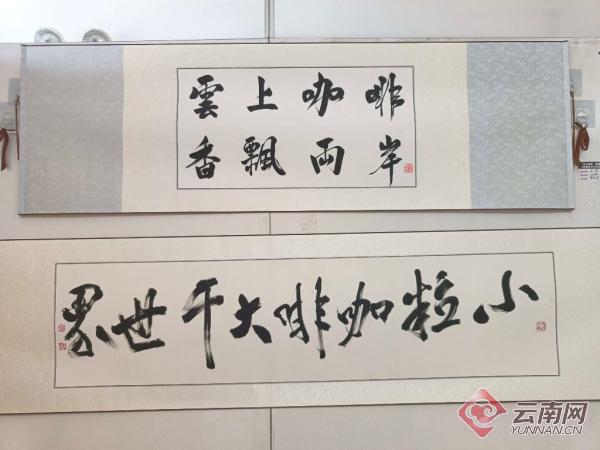 雲上咖啡
香飄兩岸
小粒咖啡大千世界
云南网
YUNNAN.CN